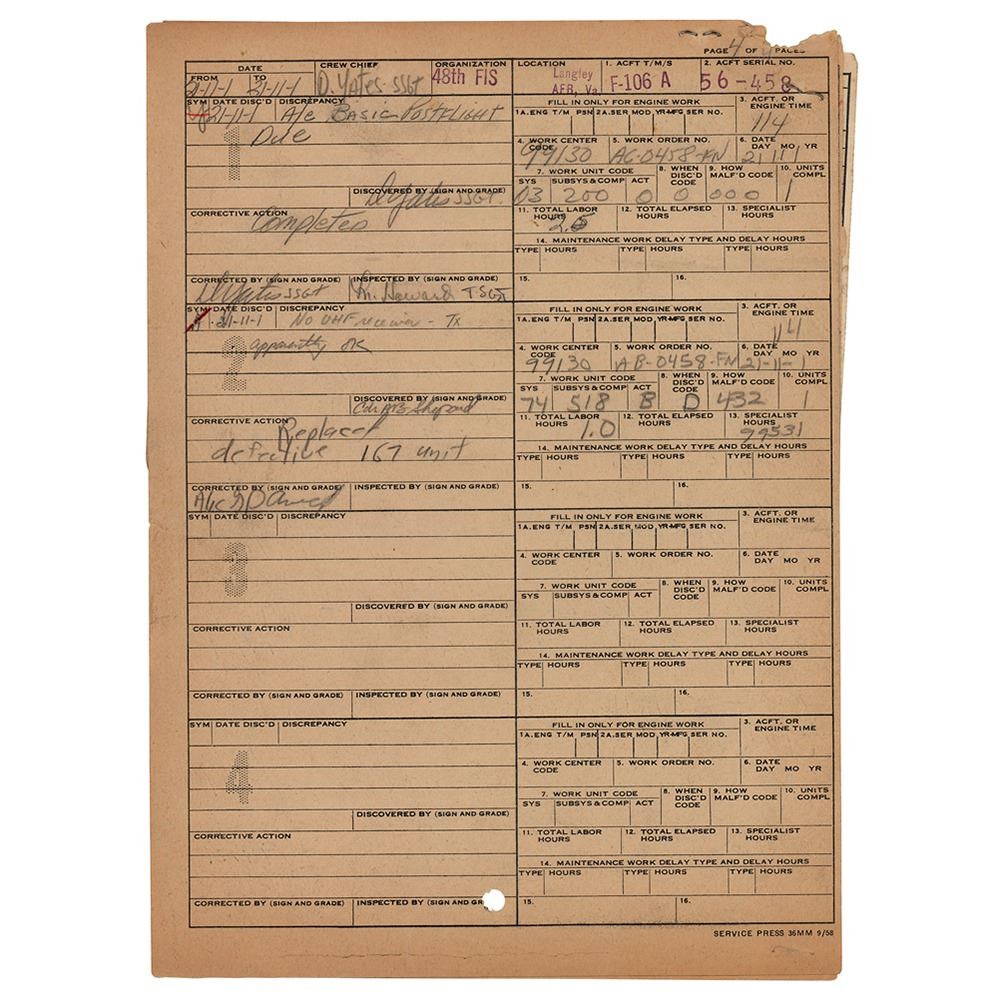 PAGE 4 OF 4 PAGES
DATE CREW CHIEF ORGANIZATION LOCATION 1. ACFT T/M/S 2. ACFT SERIAL NO.
FROM TO
21-11-1 21-11-1 D. Yates-SSGT 48th FIS Langley AFB, Va. F-106 A 56-458
SYM DATE DISC'D DISCREPANCY FILL IN ONLY FOR ENGINE WORK 3. ACFT. OR ENGINE TIME
21-11-1 A/C BASIC POSTFLIGHT 1A.ENG T/M PSN 2A.SER MOD YR-MFG SER NO. 114
1 Due 4. WORK CENTER CODE 5. WORK ORDER NO. 6. DATE DAY MO YR
99130 AC-0458-FN 21 11 1
7. WORK UNIT CODE 8. WHEN DISC'D CODE 9. HOW MALF'D CODE 10. UNITS COMPL
SYS SUBSYS & COMP ACT
DISCOVERED BY (SIGN AND GRADE) D Yates SSGT. 03 200 0 0 000 1
CORRECTIVE ACTION 11. TOTAL LABOR HOURS 12. TOTAL ELAPSED HOURS 13. SPECIALIST HOURS
Completed
14. MAINTENANCE WORK DELAY TYPE AND DELAY HOURS
TYPE HOURS TYPE HOURS TYPE HOURS
CORRECTED BY (SIGN AND GRADE) INSPECTED BY (SIGN AND GRADE) 15. 16.
D Yates SSGT Howard TSGT
SYM DATE DISC'D DISCREPANCY FILL IN ONLY FOR ENGINE WORK 3. ACFT. OR ENGINE TIME
21-11-1 No UHF receiver - Tx 1A.ENG T/M PSN 2A.SER MOD YR-MFG SER NO. 114
2 apparently OK 4. WORK CENTER CODE 5. WORK ORDER NO. 6. DATE DAY MO YR
99130 AB-0458-FN 21-11-1
7. WORK UNIT CODE 8. WHEN DISC'D CODE 9. HOW MALF'D CODE 10. UNITS COMPL
SYS SUBSYS & COMP ACT
DISCOVERED BY (SIGN AND GRADE) Cdr Shepard 74 518 B D 432 1
CORRECTIVE ACTION 11. TOTAL LABOR HOURS 12. TOTAL ELAPSED HOURS 13. SPECIALIST HOURS
Replaced 1.0 99531
defective 167 unit 14. MAINTENANCE WORK DELAY TYPE AND DELAY HOURS
TYPE HOURS TYPE HOURS TYPE HOURS
CORRECTED BY (SIGN AND GRADE) INSPECTED BY (SIGN AND GRADE) 15. 16.
SYM DATE DISC'D DISCREPANCY FILL IN ONLY FOR ENGINE WORK 3. ACFT. OR ENGINE TIME
1A.ENG T/M PSN 2A.SER MOD YR-MFG SER NO.
3 4. WORK CENTER CODE 5. WORK ORDER NO. 6. DATE DAY MO YR
7. WORK UNIT CODE 8. WHEN DISC'D CODE 9. HOW MALF'D CODE 10. UNITS COMPL
SYS SUBSYS & COMP ACT
DISCOVERED BY (SIGN AND GRADE)
CORRECTIVE ACTION 11. TOTAL LABOR HOURS 12. TOTAL ELAPSED HOURS 13. SPECIALIST HOURS
14. MAINTENANCE WORK DELAY TYPE AND DELAY HOURS
TYPE HOURS TYPE HOURS TYPE HOURS
CORRECTED BY (SIGN AND GRADE) INSPECTED BY (SIGN AND GRADE) 15. 16.
SYM DATE DISC'D DISCREPANCY FILL IN ONLY FOR ENGINE WORK 3. ACFT. OR ENGINE TIME
1A.ENG T/M PSN 2A.SER MOD YR-MFG SER NO.
4 4. WORK CENTER CODE 5. WORK ORDER NO. 6. DATE DAY MO YR
7. WORK UNIT CODE 8. WHEN DISC'D CODE 9. HOW MALF'D CODE 10. UNITS COMPL
SYS SUBSYS & COMP ACT
DISCOVERED BY (SIGN AND GRADE)
CORRECTIVE ACTION 11. TOTAL LABOR HOURS 12. TOTAL ELAPSED HOURS 13. SPECIALIST HOURS
14. MAINTENANCE WORK DELAY TYPE AND DELAY HOURS
TYPE HOURS TYPE HOURS TYPE HOURS
CORRECTED BY (SIGN AND GRADE) INSPECTED BY (SIGN AND GR 15. 16.
SERVICE PRESS 36MM 9/58